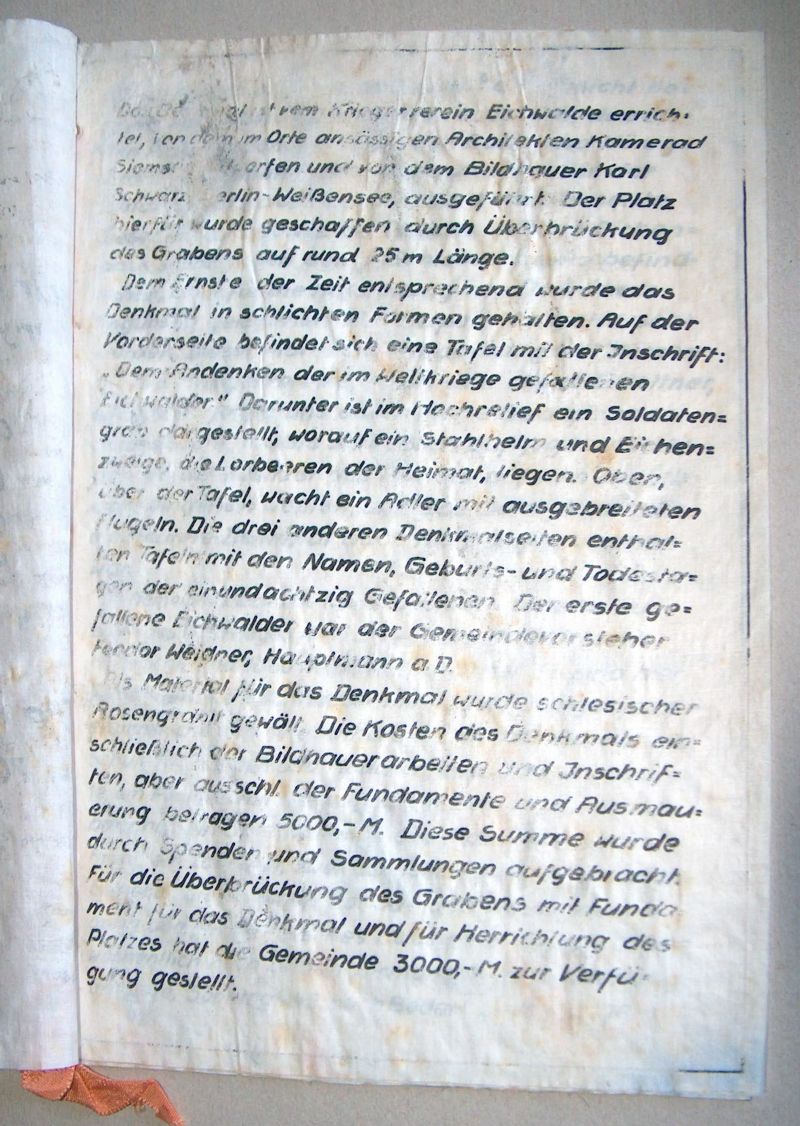 Das Denkmal ist vom Kriegerverein Eichwalde errich-
tet, von dem im Orte ansässigen Architekten Kamerad
entworfen und von dem Bildhauer Karl
Schwarz, Berlin-Weißensee, ausgeführt. Der Platz
hierfür wurde geschaffen durch Überbrückung
des Grabens auf rund 25 m Länge.
Dem Ernste der Zeit entsprechend wurde das
Denkmal in schlichten Formen gehalten. Auf der
Vorderseite befindet sich eine Tafel mit der Inschrift:
„Dem Andenken der im Weltkriege gefallenen
Eichwalder." Darunter ist im Hochrelief ein Soldaten=
grab dargestellt, worauf ein Stahlhelm und Eichen=
zweige, die Lorbeeren der Heimat, liegen. Oben,
über der Tafel, wacht ein Adler mit ausgebreiteten
Flügeln. Die drei anderen Denkmalseiten enthal=
ten Tafeln mit den Namen, Geburts- und Todesta=
gen der einundachtzig Gefallenen. Der erste ge=
fallene Eichwalder war der Gemeindevorsteher
Teodor Weidner, Hauptmann a. D.
Als Material für das Denkmal wurde schlesischer
Rosengranit gewält. Die Kosten des Denkmals ein=
schließlich der Bildhauerarbeiten und Inschrif=
ten, aber ausschl. der Fundamente und Ausmau=
erung betragen 5000,-M. Diese Summe wurde
durch Spenden und Sammlungen aufgebracht.
Für die Überbrückung des Grabens mit Funda
ment für das Denkmal und für Herrichtung des
Platzes hat die Gemeinde 3000,-M. zur Verfü-
gung gestellt.